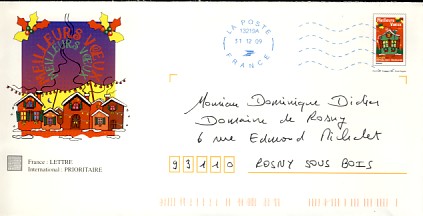 MEILLEURS VŒUX
MEILLEURS VŒUX
LA POSTE
13213A
11 12 09
FRANCE
Meilleurs
Vœux
Monsieur Dominique Didier
Domaine de Rosny
6 rue Edmond Michelet
93110 ROSNY SOUS BOIS
France : LETTRE
International : PRIORITAIRE